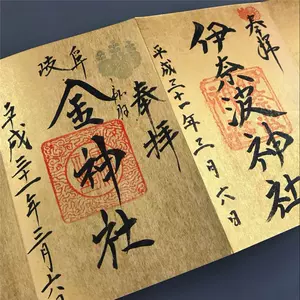 奉拝
伊奈波神社
平成三十一年三月六日
奉拝
岐阜
金神社
平成三十一年三月六日